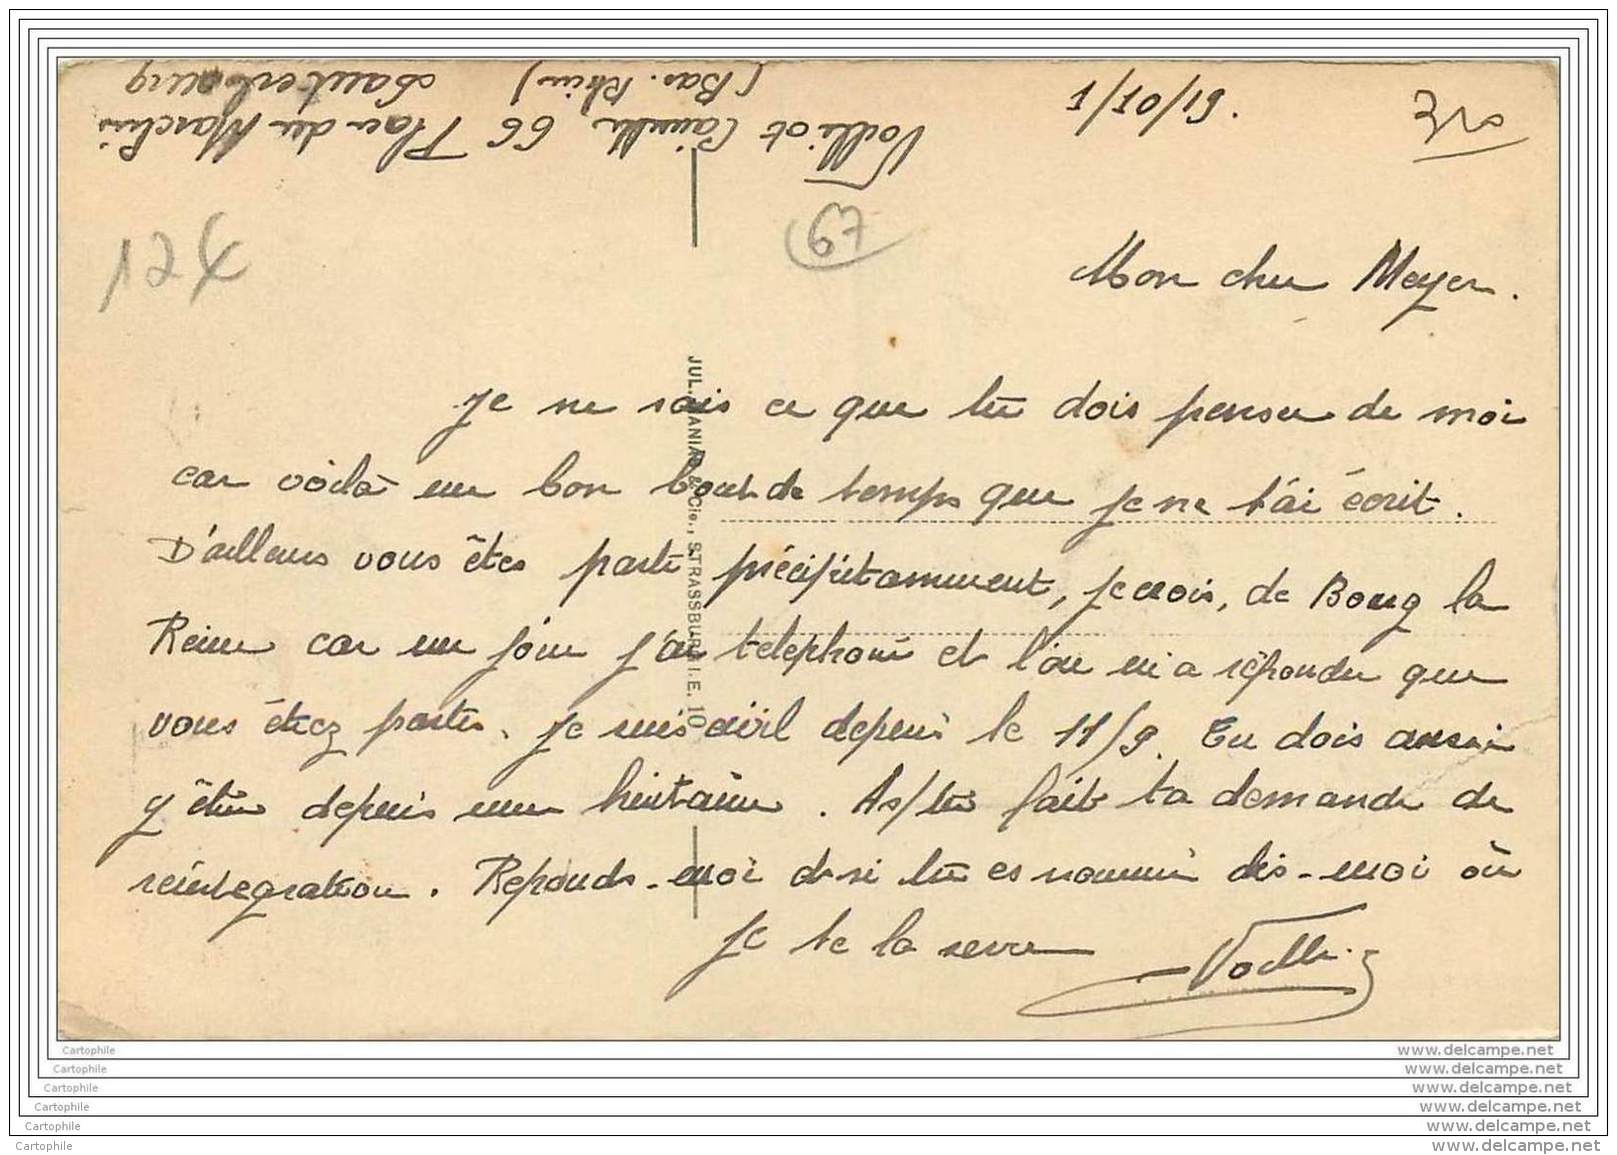 1/10/19.
Mon cher Meyer.
Je ne sais ce que tu dois penser de moi
car voilà un bon bout de temps que je ne t'ai écrit.
D'ailleurs vous êtes parti précipitamment, je crois, de Bourg la
Reine car un jour j'ai téléphoné et l'on m'a répondu que
vous étiez partis. Je suis civil depuis le 11/9. Tu dois aussi
y être depuis une huitaine. As/tu fait ta demande de
réintégration. Reponds-moi et si tu es nommé dis-moi où
Je te la serre
66 Place du Marchis
(Bas. Rhin)
Lauterbourg
67
12€
JUL. MANIAS & Cie., STRASSBURG I.E. 10
Cartophile
Cartophile
Cartophile
Cartophile
Cartophile
Cartophile
www.delcampe.net
www.delcampe.net
www.delcampe.net
www.delcampe.net
www.delcampe.net
www.delcampe.net